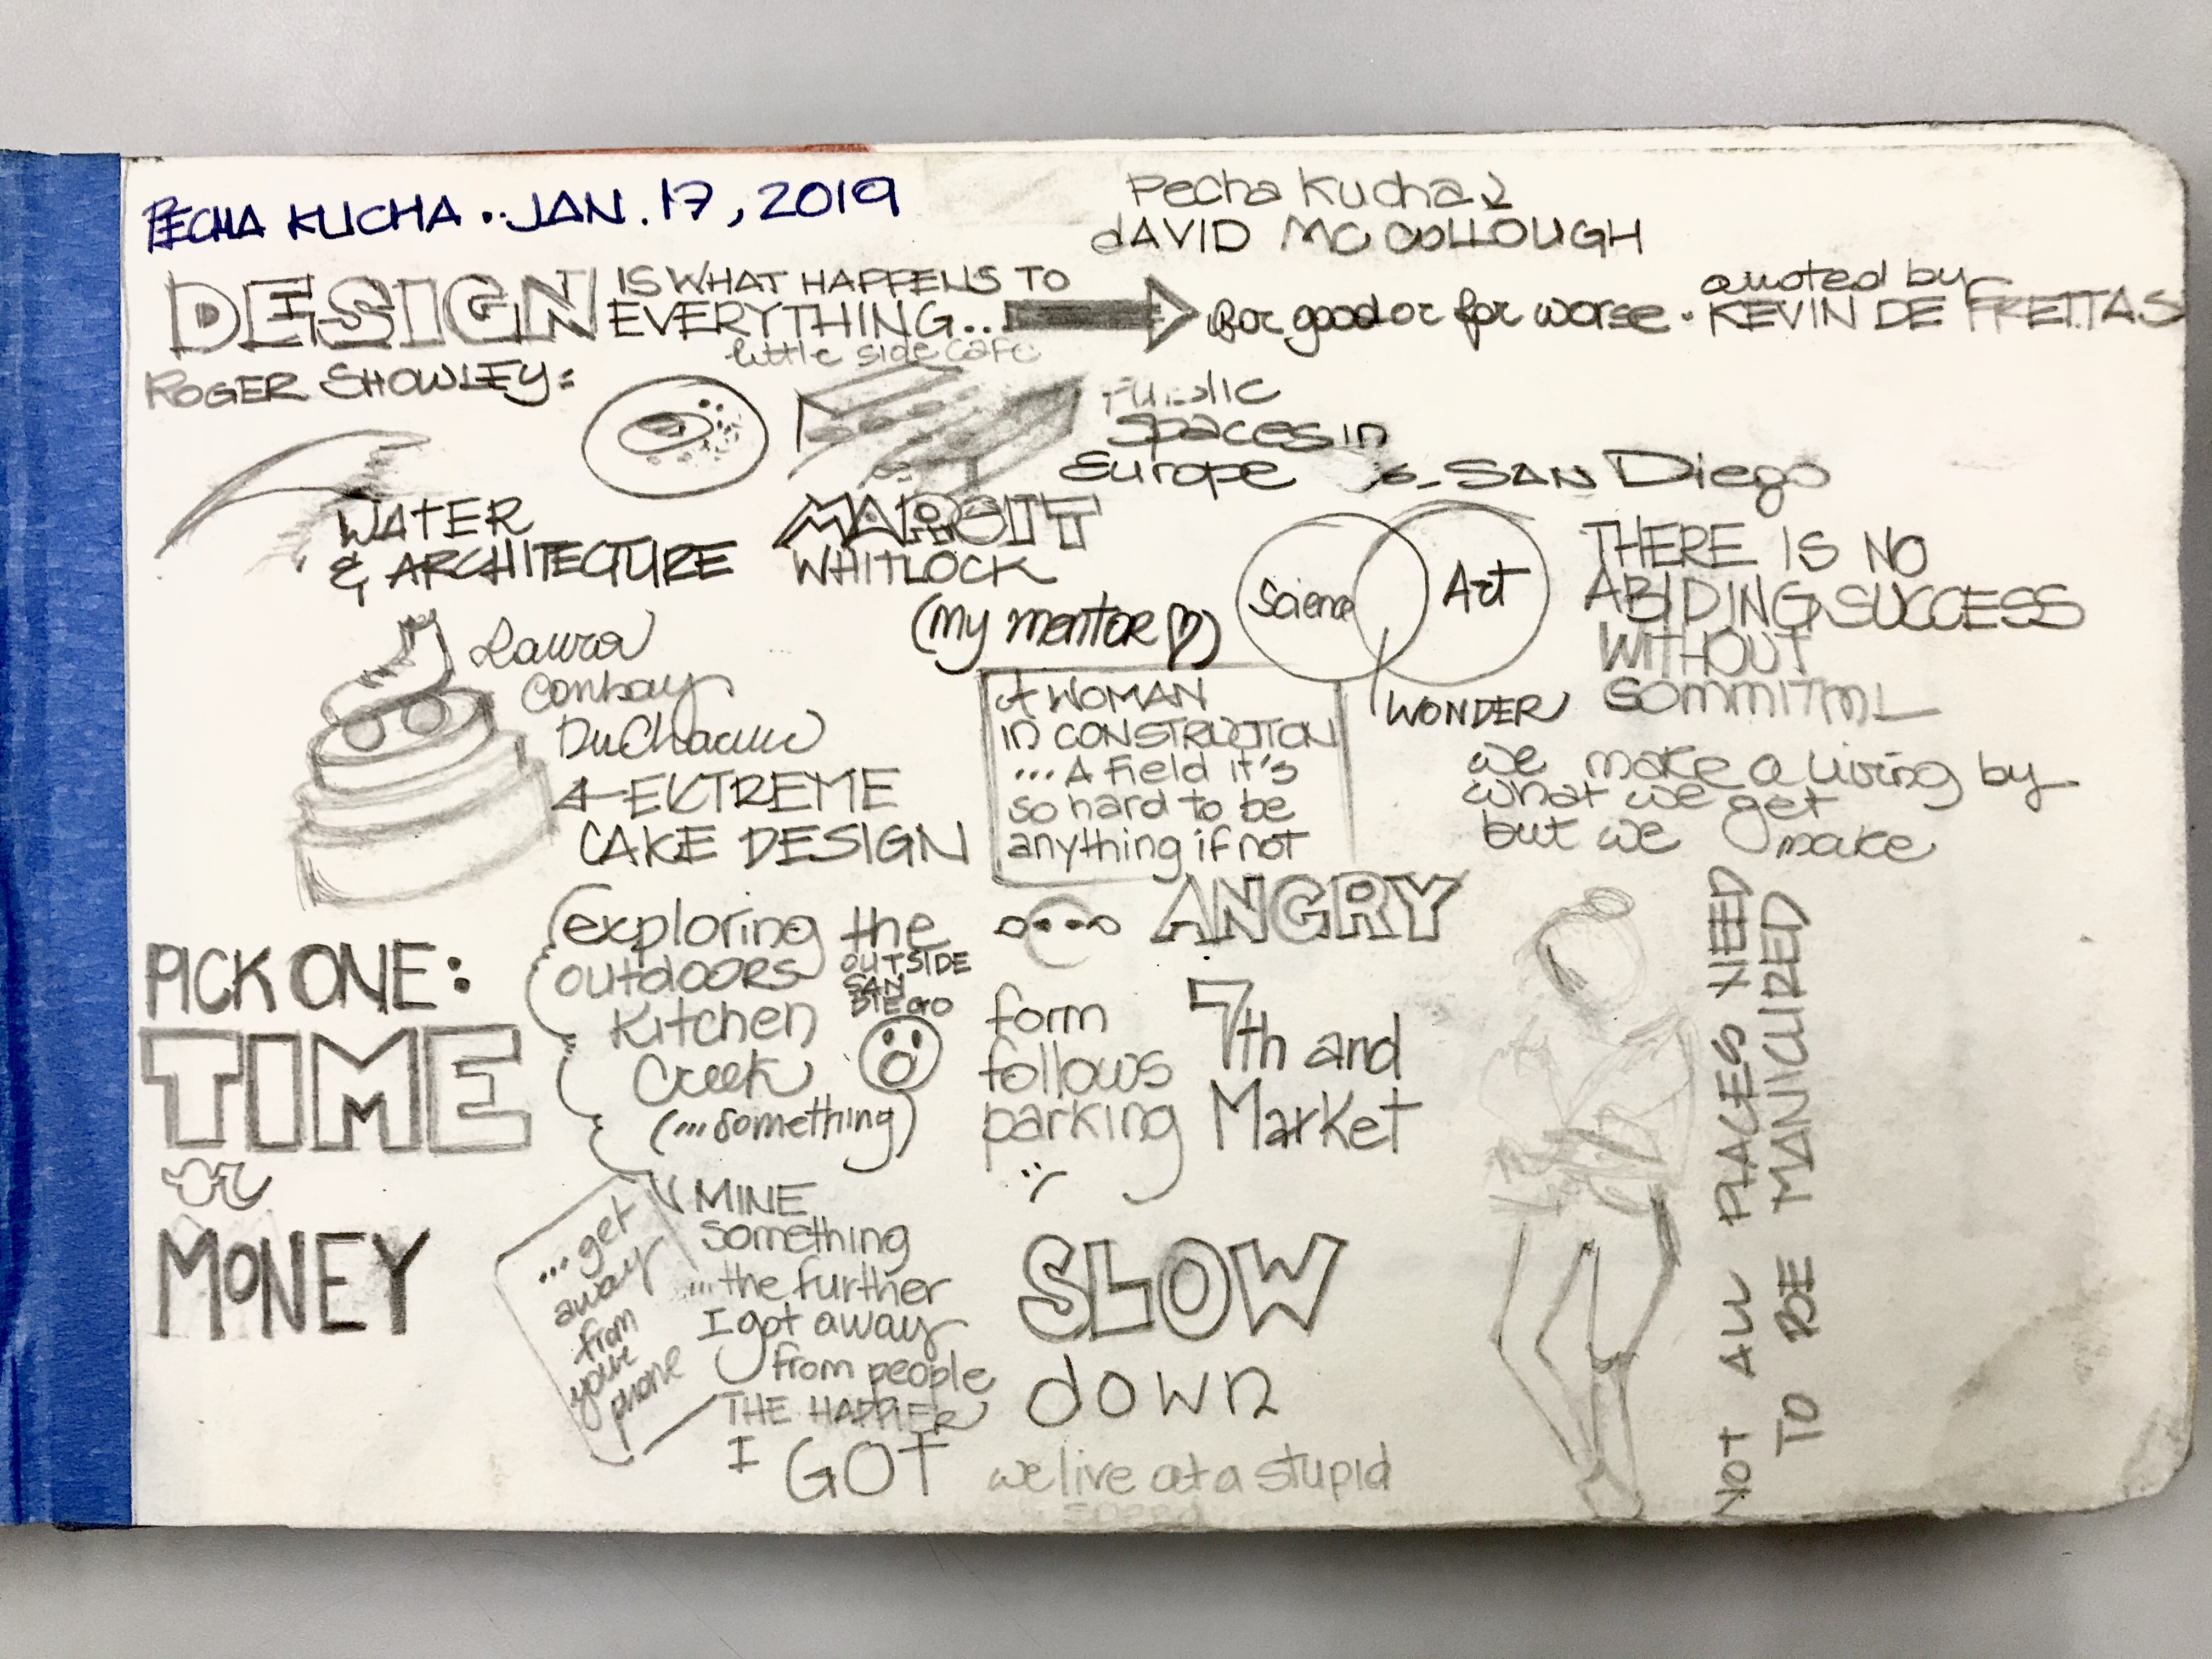 PECHA KUCHA..JAN. 17, 2019
Pecha Kucha
dAVID MC COLLOUGH
DESIGN IS WHAT HAPPENS TO
EVERYTHING...
for good or for worse.
quoted by
KEVIN DE FREITAS
ROGER SHOWLEY:
little side cafe
Public
spaces in
Europe
SAN Diego
WATER
& ARCHITECTURE
MARGIT
WHITLOCK
(my mentor)
Science
Art
WONDER
THERE IS NO
ABIDING SUCCESS
WITHOUT
we make a living by
what we get
but we make
Laura
DuCharme
EXTREME
CAKE DESIGN
A WOMAN
in CONSTRUCTION
...A field it's
so hard to be
anything if not
ANGRY
PICK ONE:
TIME
or
MONEY
exploring the
outdoors
OUTSIDE
SAN
DIEGO
Kitchen
Creek
(...something)
form
follows
parking
7th and
Market
...get
away
from
your
phone
MINE
something
...the further
I got away
from people
THE HAPPIER
I GOT
SLOW
down
we live at a stupid
speed
NOT ALL PLACES NEED
TO BE MANICURED